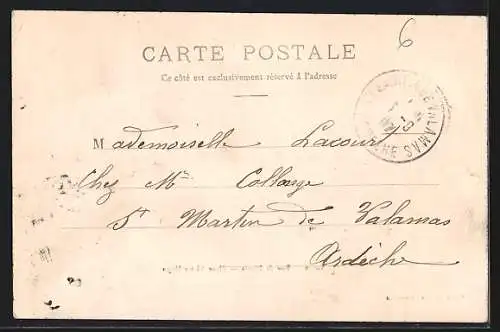 6
CARTE POSTALE
Ce côté est exclusivement réservé à l'adresse
Mademoiselle Lacour
Chez Mr Collange
St Martin de Valamas
Ardèche